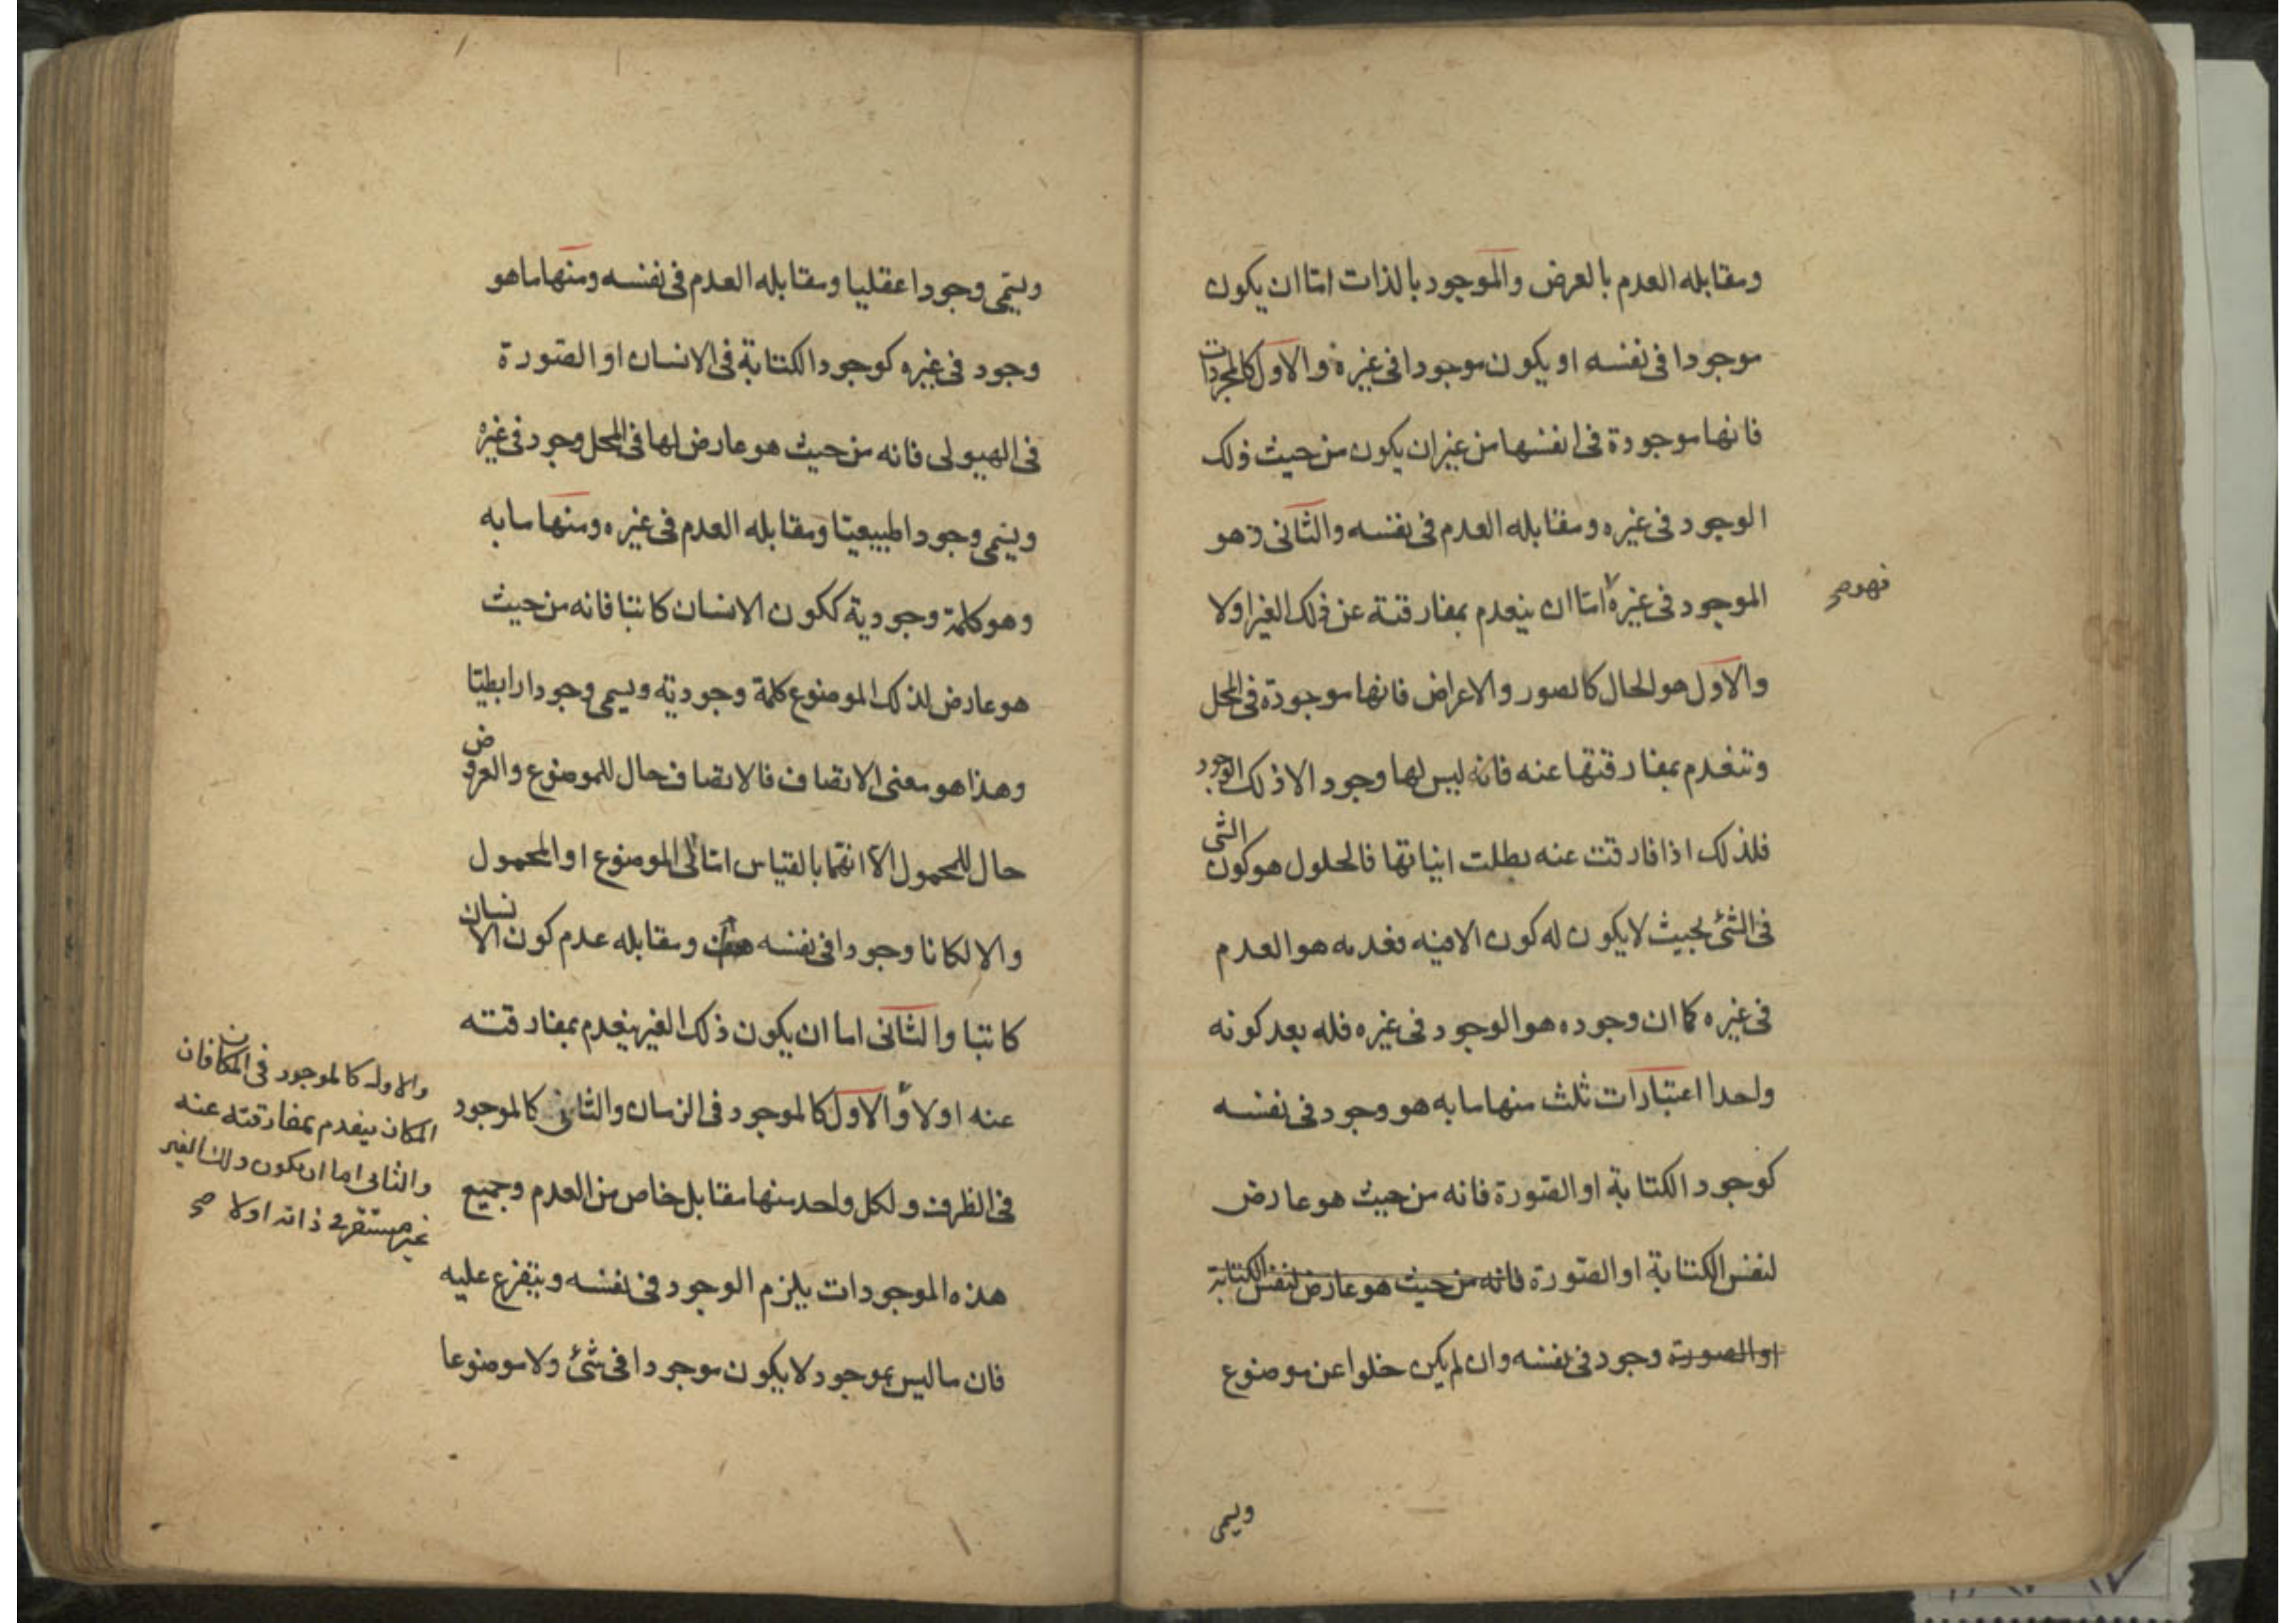 ومقابله العدم بالعرض والموجود بالذات اما ان يكون
موجودا فى نفسه او يكون موجودا فى غيره والاول كالمجردات
فانها موجودة فى انفسها من غير ان يكون من حيث ذلك
الوجود فى غيره ومقابله العدم فى نفسه والثانى وهو
الموجود فى غيره اما ان ينعدم بمفارقته عن ذلك الغير اولا
فهو صح
والاول هو الحال كالصور والاعراض فانها موجودة فى المحل
وتنعدم بمفارقتها عنه فانه ليس لها وجود الا ذلك الوجود
فلذلك اذا فارقت عنه بطلت انياتها فالحلول هو كون الشى
فى الشئ بحيث لا يكون له كون الا فيه فعدمه هو العدم
فى غيره كما ان وجوده هو الوجود فى غيره فله بعد كونه
واحدا اعتبارات ثلث منها ما به هو وجود فى نفسه
كوجود الكتابة او الصورة فانه من حيث هو عارض
لنفس الكتابة او الصورة فانه من حيث هو عارض لنفس الكتابة
او الصورة وجود فى نفسه وان لم يكن خلوا عن موضوع
ويسمى
ويسمى وجودا عقليا ومقابله العدم فى نفسه ومنها ما هو
وجود فى غيره كوجود الكتابة فى الانسان او الصورة
فى الهيولى فانه من حيث هو عارض لها فى المحل وجود فى غيره
ويسمى وجودا طبيعيا ومقابله العدم فى غيره ومنها ما به
وهو كلمة وجودية ككون الانسان كاتبا فانه من حيث
هو عارض لذلك الموضوع كلمة وجودية ويسمى وجودا رابطيا
وهذا هو معنى الاتصاف فالاتصاف حال للموضوع والعروض
حال للمحمول الا انهما بالقياس اما الى الموضوع او المحمول
والا لكانا وجودا فى نفسه ومقابله عدم كون الانسان
كاتبا والثانى اما ان يكون ذلك الغير ينعدم بمفارقته
عنه اولا والاول كالموجود فى الزمان والثانى كالموجود
فى الظرف ولكل واحد منها مقابل خاص من العدم وجميع
هذه الموجودات يلزم الوجود فى نفسه ويتفرع عليه
فان ما ليس بموجود لا يكون موجودا فى شئ ولا موضوعا
والاول كالموجود فى المكان فان
المكان ينعدم بمفارقته عنه
والثانى اما ان يكون ذلك الغير
غير مستقر فى ذاته اولا صح